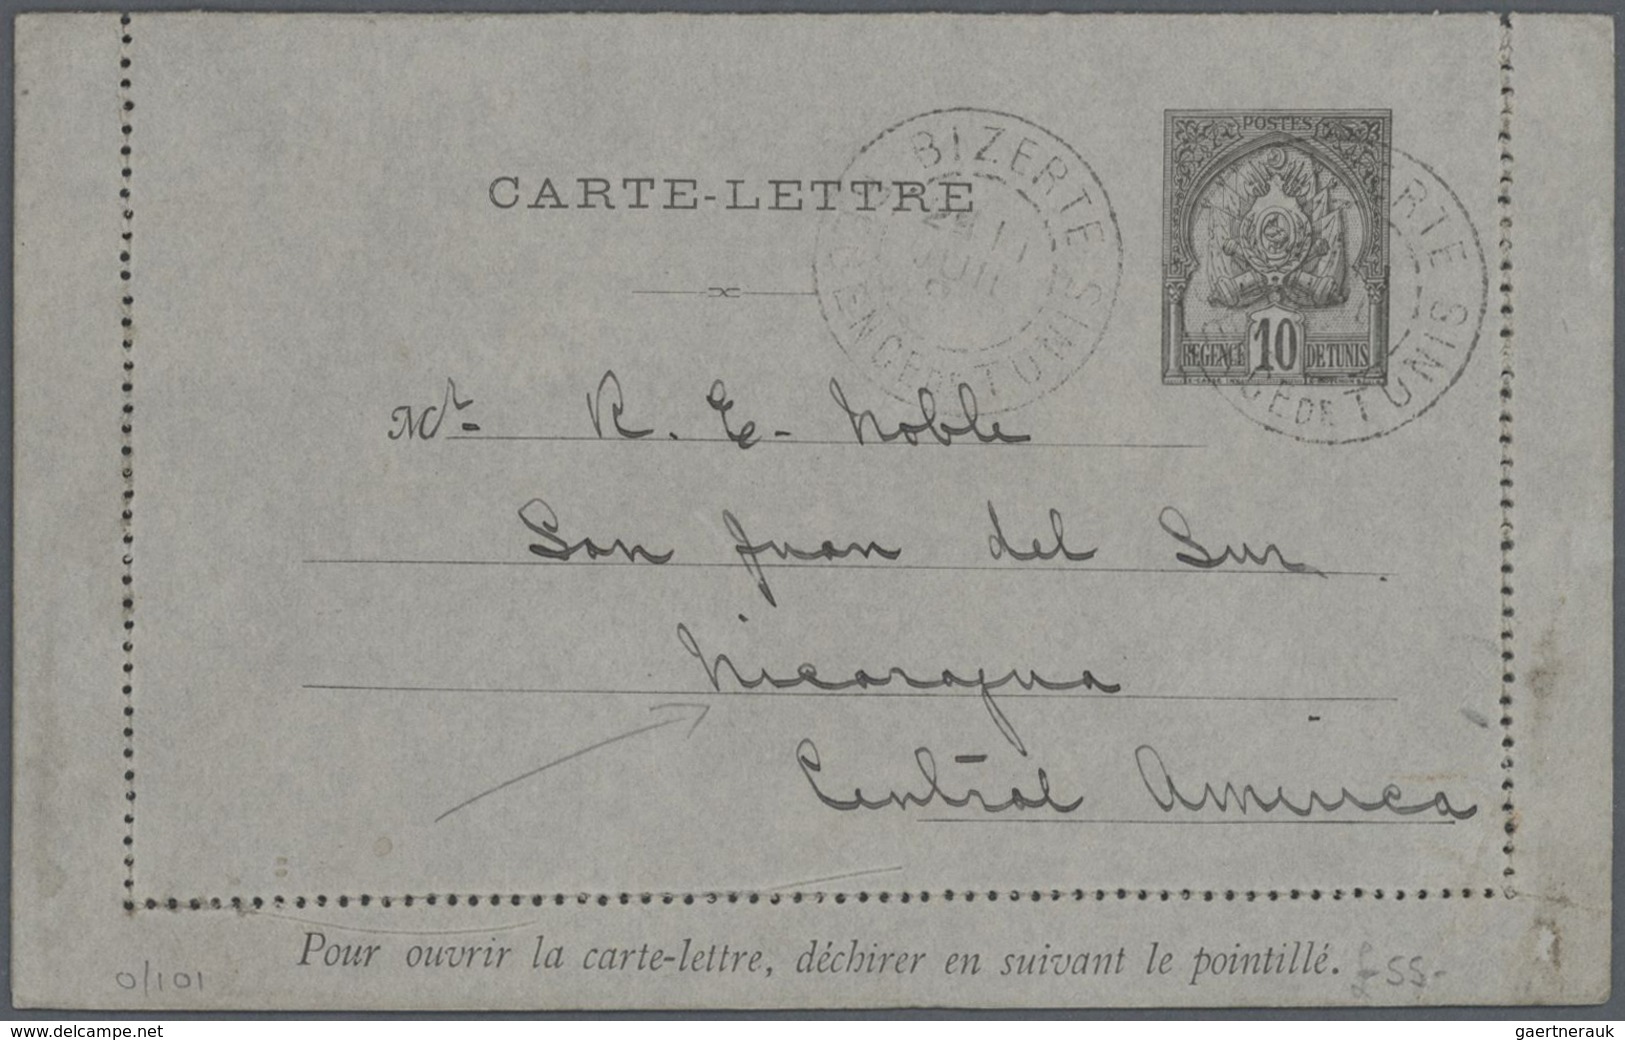 POSTES
BIZERTE
CARTE-LETTRE
JUIL
REGENCE DE TUNIS
REGENCE 10 DE TUNIS
RTE
CE DE TUNIS
Mr- R. E- Noble
San Juan del Sur.
Nicaragua
Central America
Pour ouvrir la carte-lettre, déchirer en suivant le pointillé.
0/101
£55-
www.delcampe.net
gaertnerauk